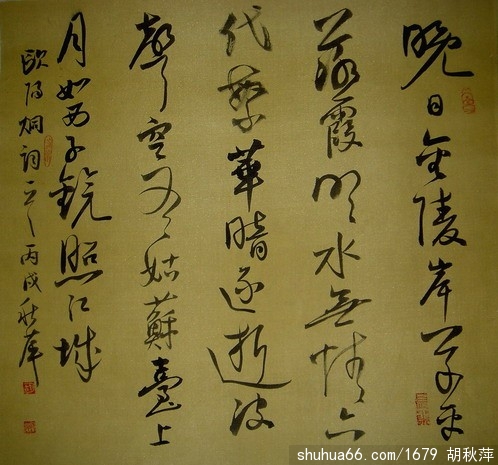 晚日金陵岸草平
落霞明水無情六
代繁華暗逐逝波
聲空有姑蘇臺上
月如西子鏡照江城
歐陽炯詞 丙戌秋萍
shuhua66.com/1679 胡秋萍